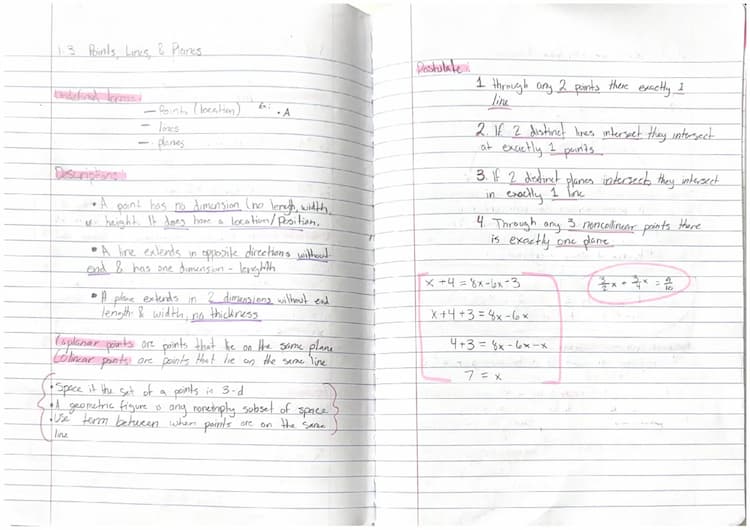 1.3 Points, Lines, & Planes
Undefined terms
— Points (location) Ex: • A
— lines
— planes
Descriptions
• A point has no dimension (no length, width,
or height. It does have a location/position.
• A line extends in opposite directions without
end & has one dimension - length
• A plane extends in 2 dimensions without end
length & width, no thickness
Coplanar points are points that lie on the same plane
Colinear points are points that lie on the same line
• Space is the set of a points in 3-d
• A geometric figure is any nonempty subset of space
• Use term between when points are on the same
line
Postulate:
1. through any 2 points there exactly 1
line
2. If 2 distinct lines intersect they intersect
at exactly 1 points
3. If 2 distinct planes intersects they intersect
in exactly 1 line
4. Through any 3 noncollinear points there
is exactly one plane
x + 4 = 8x - 6x - 3
x + 4 + 3 = 8x - 6x
4 + 3 = 8x - 6x - x
7 = x